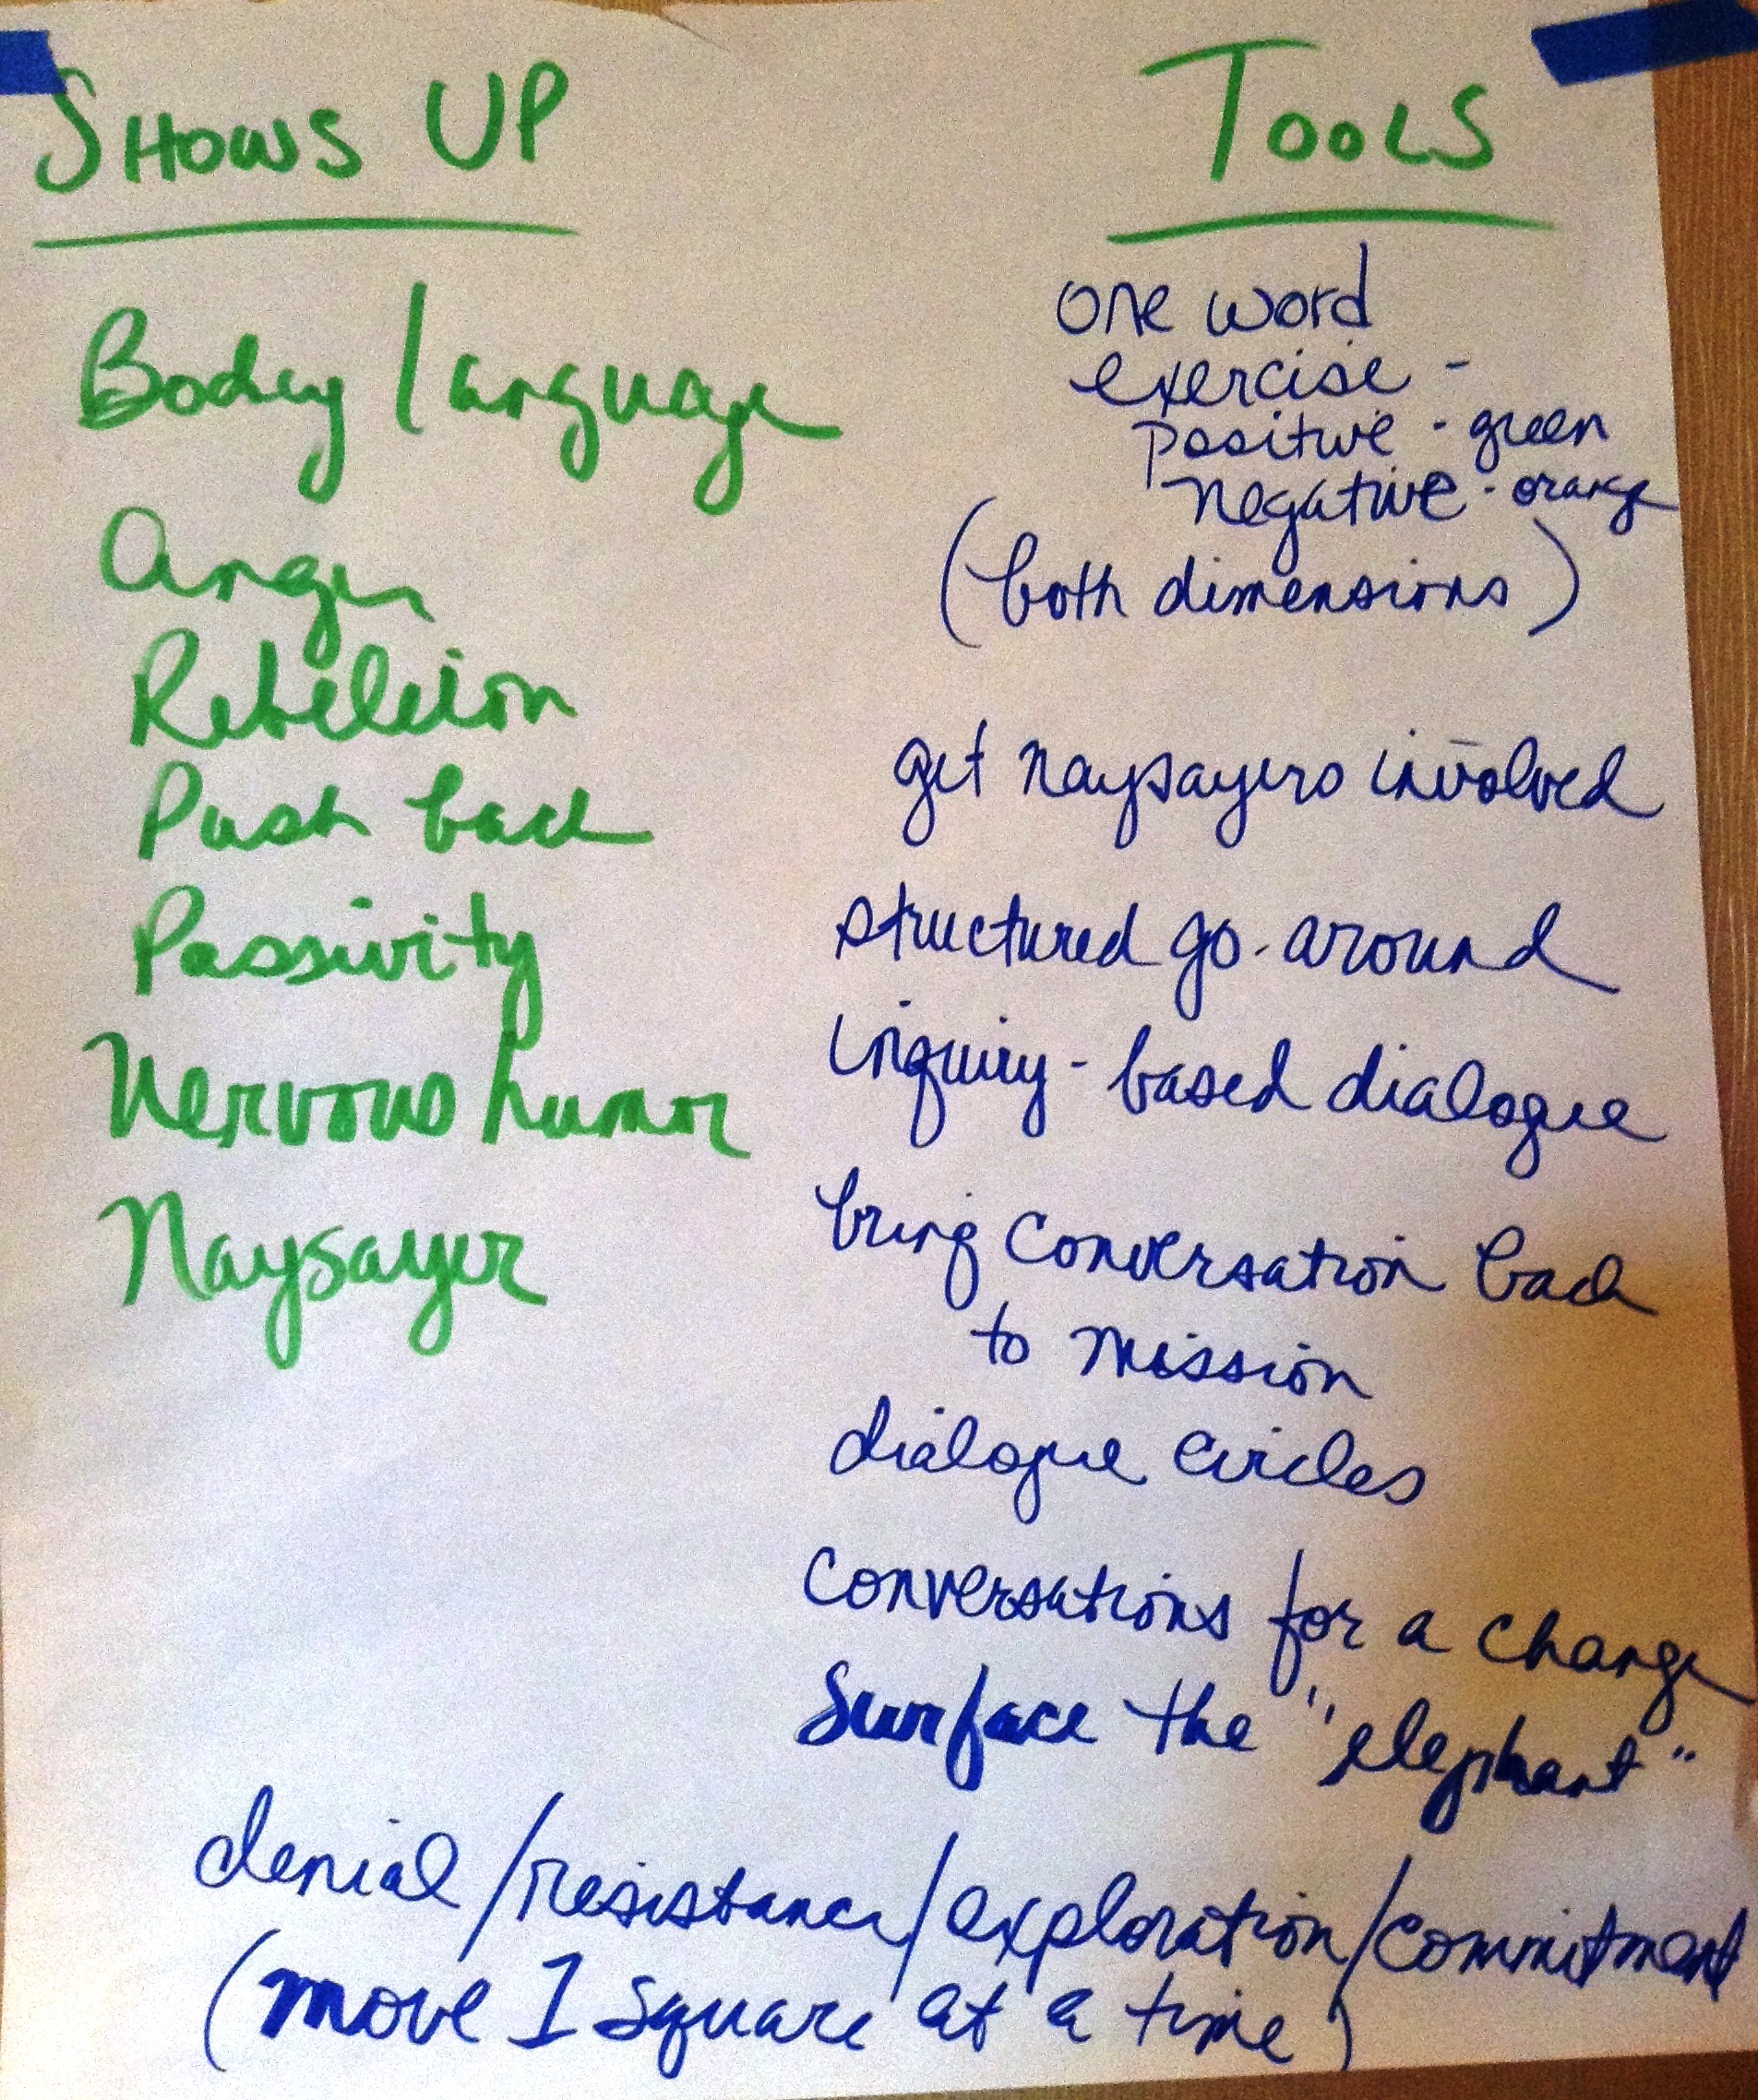 SHOWS UP
Body language
Anger
Rebellion
Push back
Passivity
Nervous humor
Naysayer
TOOLS
one word
exercise -
positive - green
negative - orange
(both dimensions)
get naysayers involved
structured go-around
inquiry-based dialogue
bring conversation back
to mission
dialogue circles
conversations for a change
Surface the "elephant"
denial/resistance/exploration/commitment
(move 1 square at a time)